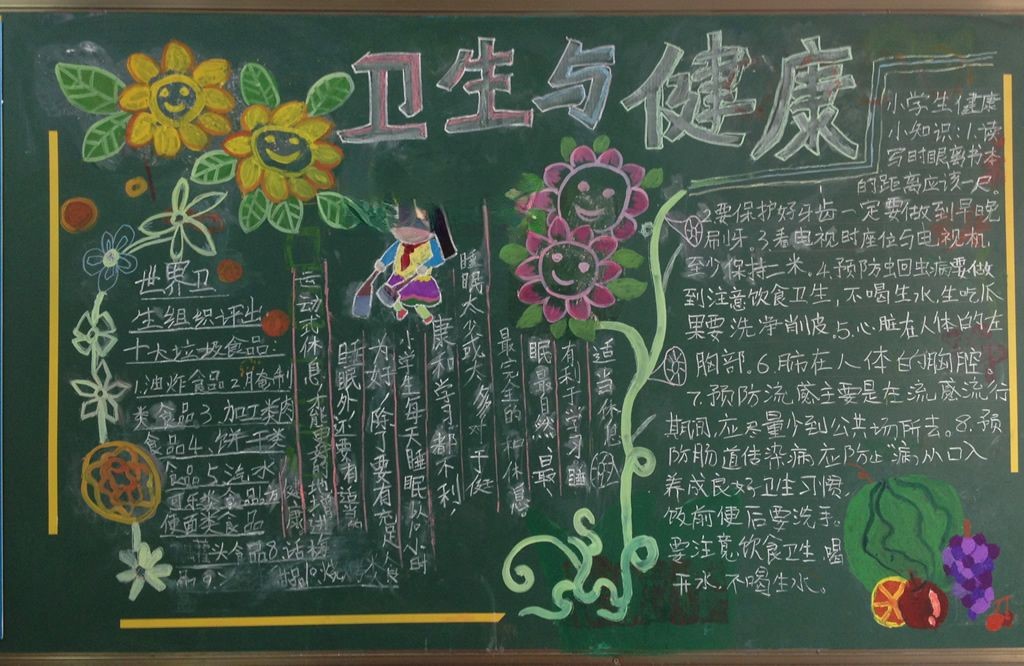 卫生与健康
世界卫
生组织评出
十大垃圾食品
1.油炸食品2.腌制
类食品3.加工类肉
食品4.饼干类
食品5.汽水
可乐类食品6.方
便面类食品
头食品8.话梅
适当休息
有利于学习睡
眠最自然、最
最完全的一种休息
睡眠太少或太多对于健
康和学习都不利,
小学生每天睡眠以八小时
为好,除了要有充足
睡眠外还要有适当
运动和休息,才能更好
小学生健康
小知识:1.读
写时眼离书本
的距离应该一尺。
2.要保护好牙齿一定要做到早晚
刷牙。3.看电视时座位与电视机
至少保持二米。4.预防蛔虫病要做
到注意饮食卫生,不喝生水,生吃瓜
果要洗净削皮。5.心脏在人体的左
胸部。6.肺在人体的胸腔。
7.预防流感主要是在流感流行
期间,应尽量少到公共场所去。8.预
防肠道传染病,应防止"病从口入
养成良好卫生习惯,
饭前便后要洗手。
要注意饮食卫生,喝
开水,不喝生水。